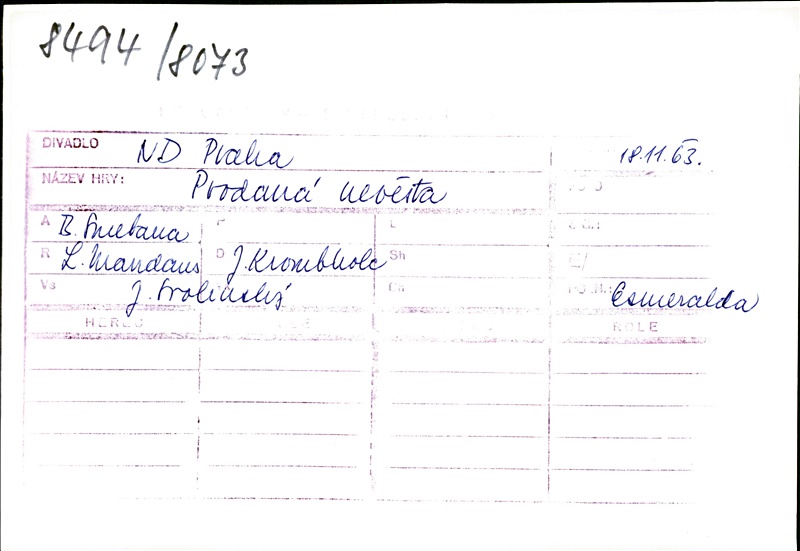 8494/8073
DIVADLO ND Praha 18.11.63.
NÁZEV HRY: Prodaná nevěsta
A B. Smetana P L
R L. Mandaus D J. Krombholc Sh
Vs Ch Esmeralda
HEREC ROLE